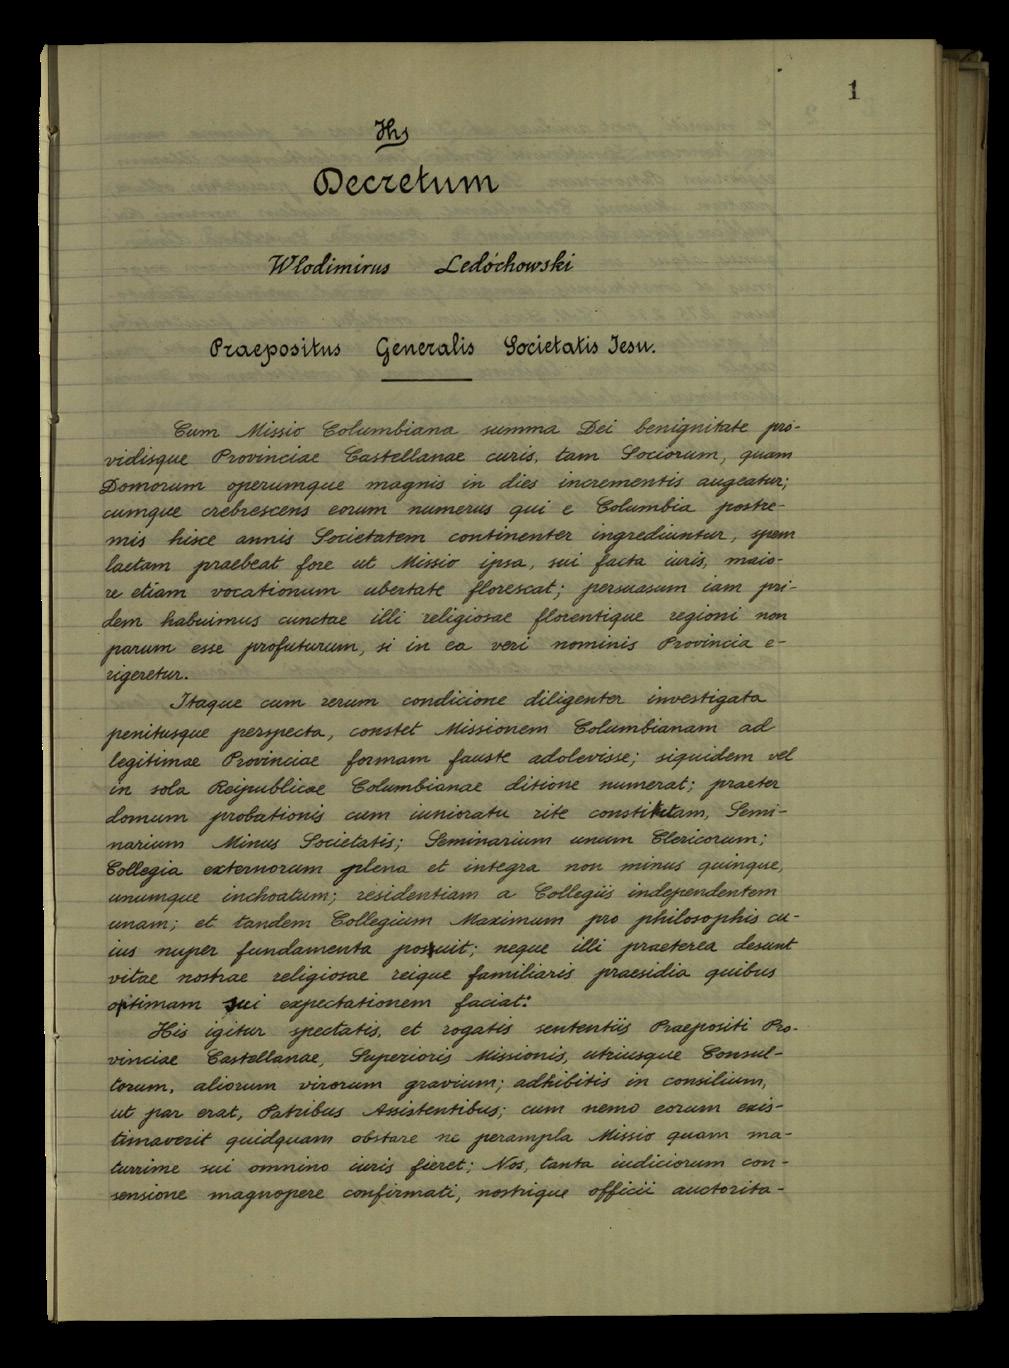 1
Ihs
Decretum
Wlodimirus Ledóchowski
Praepositus Generalis Societatis Iesu.
Cum Missio Columbiana summa Dei benignitate pro-
vidisque Provinciae Castellanae curis, tam Sociorum, quam
Domorum operumque magnis in dies incrementis augeatur;
cumque crebrescens eorum numerus qui e Columbia postre-
mis hisce annis Societatem continenter ingrediuntur, spem
laetam praebeat fore ut Missio ipsa, sui facta iuris, maio-
re etiam vocationum ubertate florescat; persuasum iam pri-
dem habuimus cunctae illi religiosae florentique regioni non
parum esse profuturum, si in ea veri nominis Provincia e-
rigeretur.
Itaque cum rerum condicione diligenter investigata
penitusque perspecta, constet Missionem Columbianam ad
legitimae Provinciae formam fauste adolevisse; siquidem vel
in sola Reipublicae Columbianae ditione numerat; praeter
domum probationis cum iunioratu rite constitutam, Semi-
narium Minus Societatis; Seminarium unum Clericorum;
Collegia externorum plena et integra non minus quinque,
unumque inchoatum; residentiam a Collegiis independentem
unam; et tandem Collegium Maximum pro philosophis cu-
ius nuper fundamenta posuit; neque illi praeterea desunt
vitae nostrae religiosae reique familiaris praesidia quibus
optimam sui expectationem faciat:
His igitur spectatis, et rogatis sententiis Praepositi Pro-
vinciae Castellanae, Superioris Missionis, utriusque Consul-
torum, aliorum virorum gravium; adhibitis in consilium,
ut par erat, Patribus Assistentibus; cum nemo eorum exis-
timaverit quidquam obstare ne perampla Missio quam ma-
turrime sui omnino iuris fieret; Nos, tanta iudiciorum con-
sensione magnopere confirmati, nostrique officii auctorita-